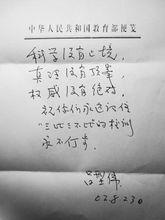 中华人民共和国教育部便笺
科学没有止境，
真理没有顶峰，
权威没有绝对，
祝你们永远记住
"三比三不比"的校训
永不停步。
吕型伟
02.8.230